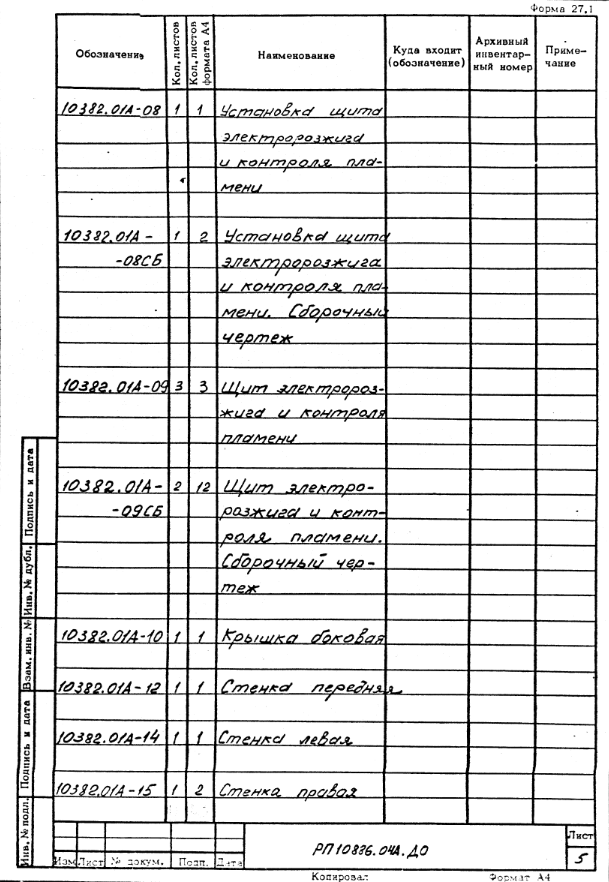 Форма 27.1
Обозначение
Кол. листов
Кол. листов
формата А4
Наименование
Куда входит
(обозначение)
Архивный
инвентар-
ный номер
Приме-
чание
10382.01А-08 1 1 Установка щита
электророзжига
и контроля пла-
мени
10382.01А- 1 2 Установка щита
-08СБ электророзжига
и контроля пла-
мени. Сборочный
чертеж
10382.01А-09 3 3 Щит электророз-
жига и контроля
пламени
10382.01А- 2 12 Щит электро-
-09СБ розжига и конт-
роля пламени.
Сборочный чер-
теж
10382.01А-10 1 1 Крышка боковая
10382.01А-12 1 1 Стенка передняя
10382.01А-14 1 1 Стенка левая
10382.01А-15 1 2 Стенка правая
Подпись и дата
Инв. № дубл.
Взам. инв. №
Подпись и дата
Инв. № подл.
Изм Лист № докум. Подп. Дата
РП10836.04А.ДО
Лист
5
Копировал Формат А4